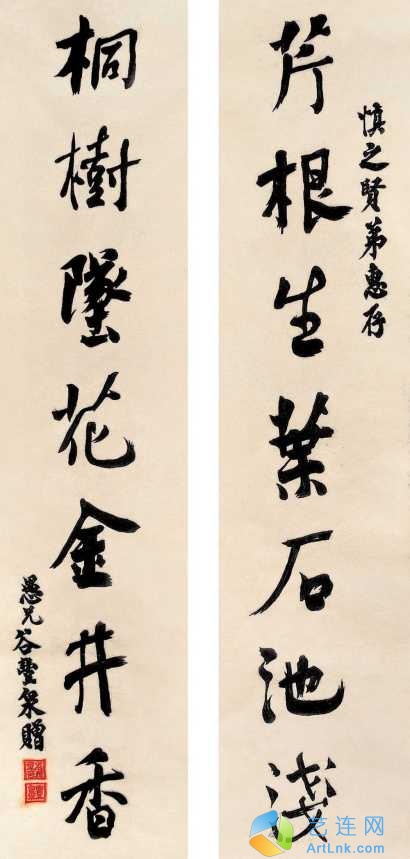 芹根生葉石池淺
慎之賢弟惠存
桐樹墜花金井香
愚兄谷豐桀贈
艺连网
ArtLnk.com